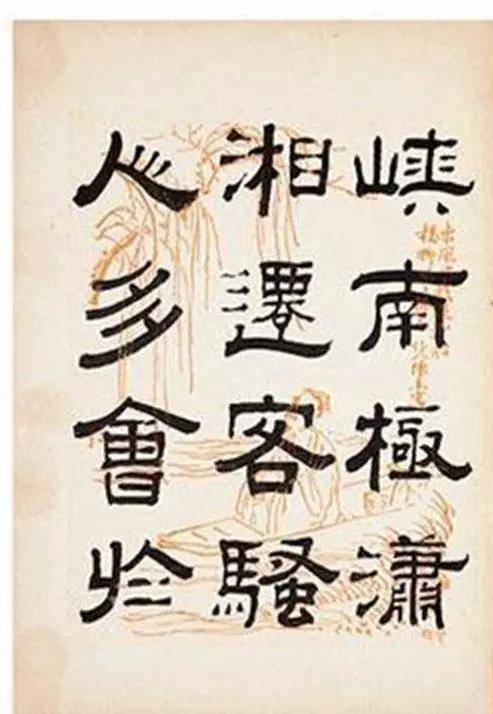 峽南極瀟
湘遷客騷
人多會於